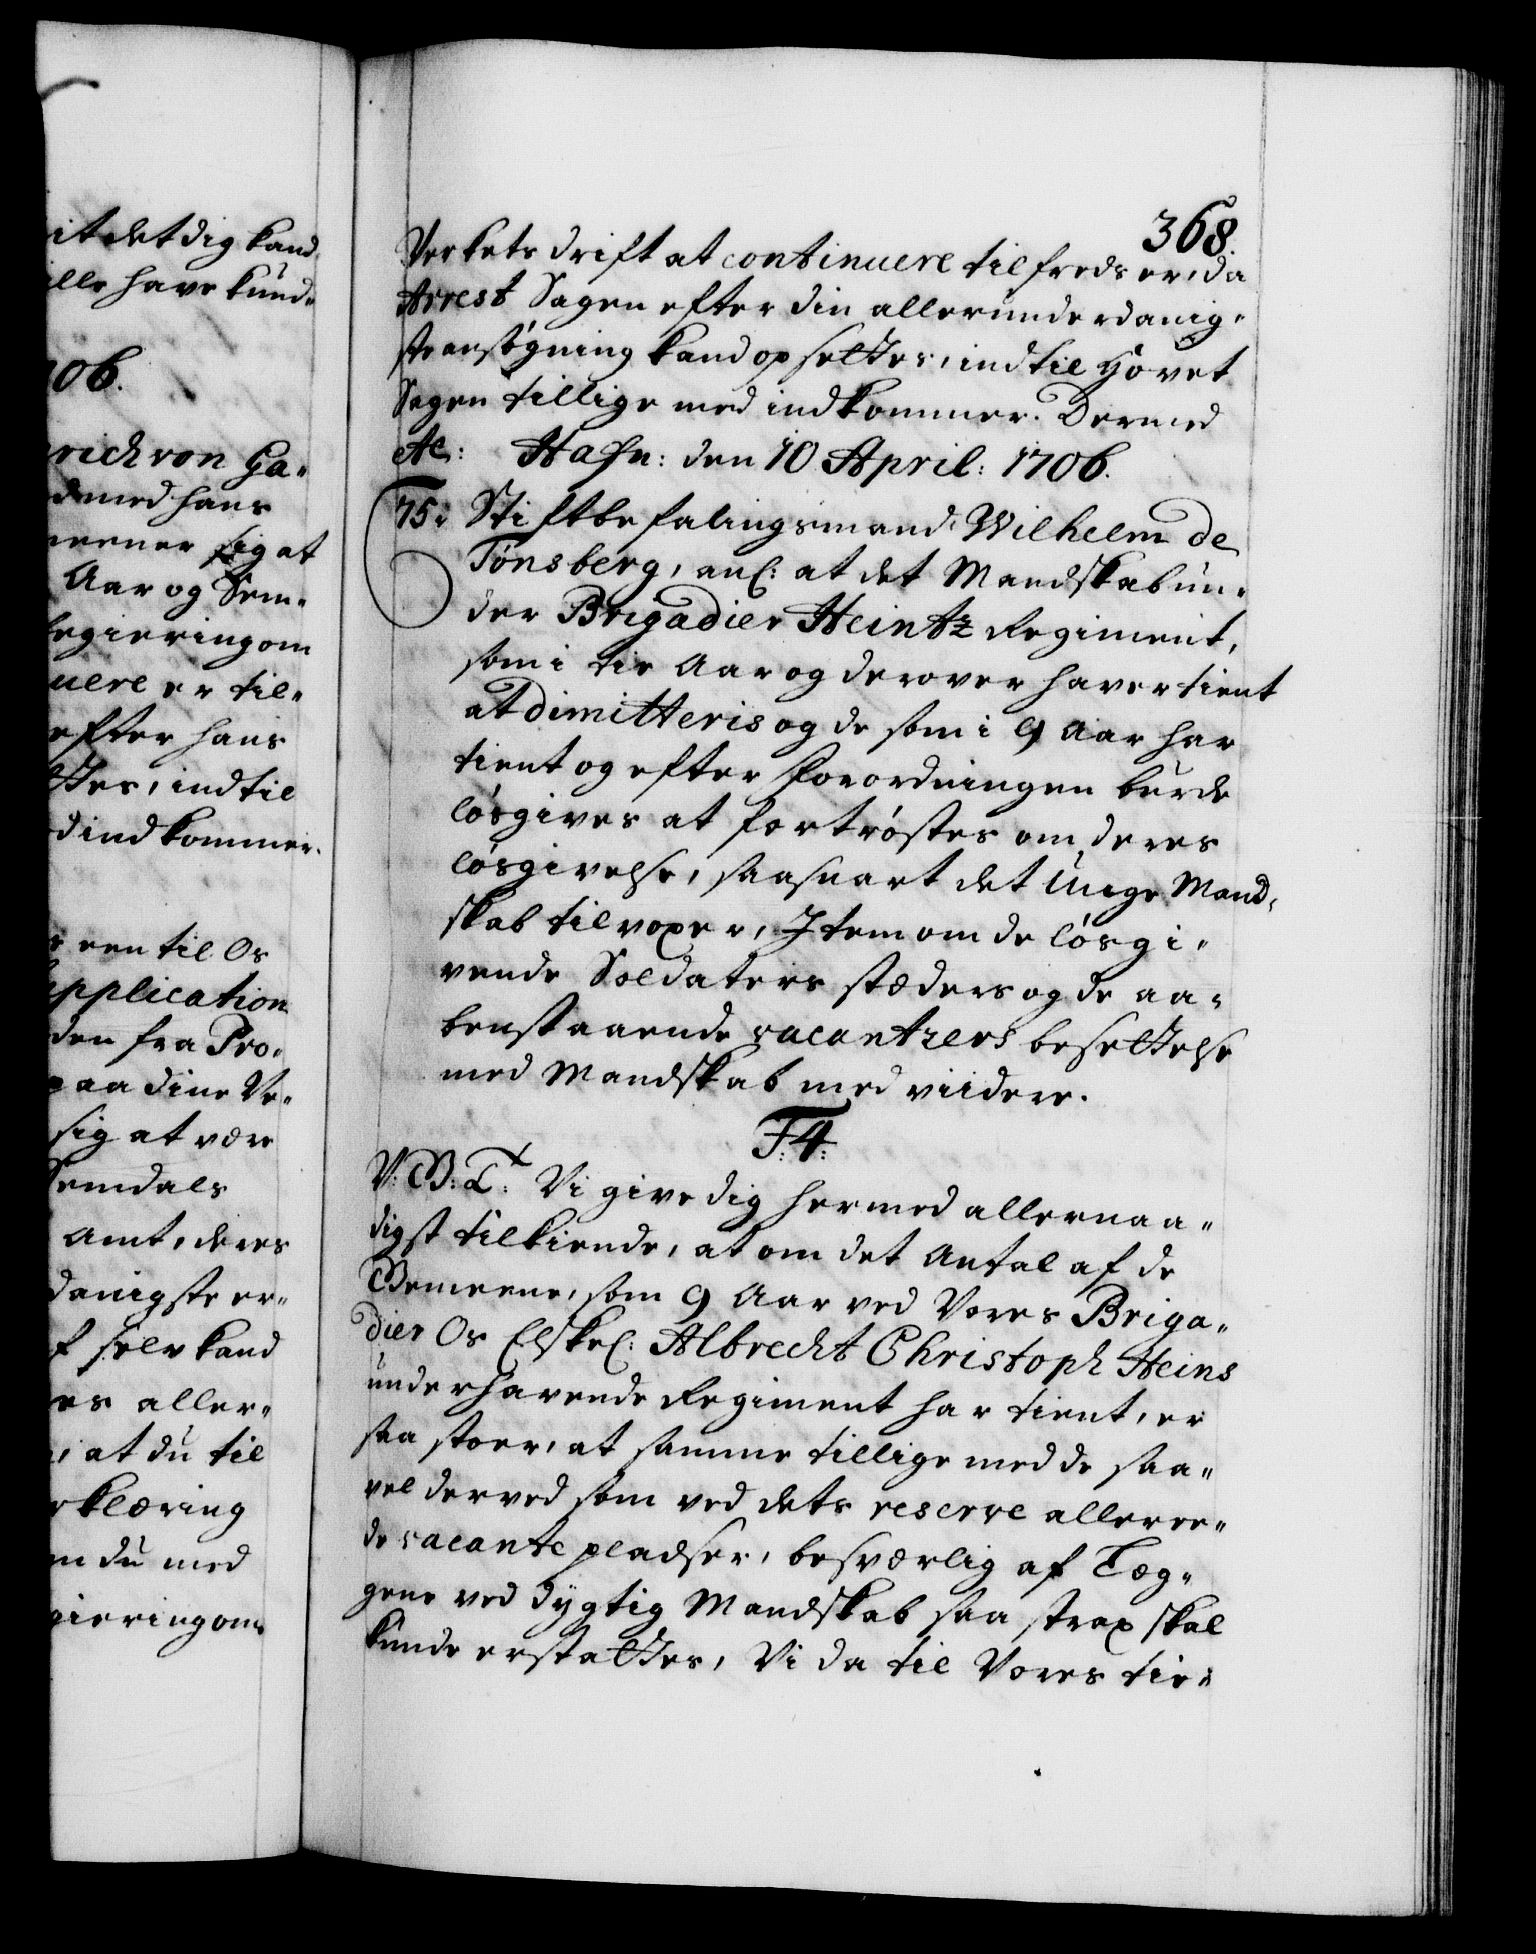 it det dig kand
ille have kund„
06.
rich von Ha„
d med hans
meener sig at
Aar og Sem„
Regiering om
uere er til„
efter hans
ttes, indtil
d indkommer.
een til Os
pplication
den fra Pro„
paa dine Ve„
sig at være
Semdals
Amt, deres
danigste er„
f selv kand
es aller„
, at du til
rklæring
m du med
giering om
368.
Verkets drift at continuere tilfreds er, da
Arrest Sagen efter din allerunderdanig„
ste ansögning kand opsettes, indtil Hovet
Sagen tillige med indkommer. Dermed
etc: Hafn: den 10 April: 1706.
75: Stiftbefalingsmand Wilhelm de
Tönsberg, anl: at det Mandskab un„
der Brigadier Heintz Regiment,
som i tie Aar og derover haver tient
at dimitteris og de som i 9 Aar har
tient og efter Forordningen burde
lösgives at fortröstes om deres
lösgivelse, saasnart det Unge Mand„
skab tilvoxer, Item om de lösgi„
vende Soldaters stæders og de aa„
benstaaende vacantzers besettelse
med Mandskab med viidere.
F: 4:
V: G: T: Vi give dig hermed allernaa„
digst tilkiende, at om det Antal af de
Gemeene, som 9 Aar ved Vores Briga„
dier Os Elskel: Albrecht Christoph Heins
underhavende Regiment har tient, er
saa stoer, at samme tillige med de saa„
vel derved som ved dets reserve allere„
de vacante pladser, besværlig af Læg„
gene ved dygtig Mandskab saa strax skal
kunde erstattes, Vi da til Vores tie„